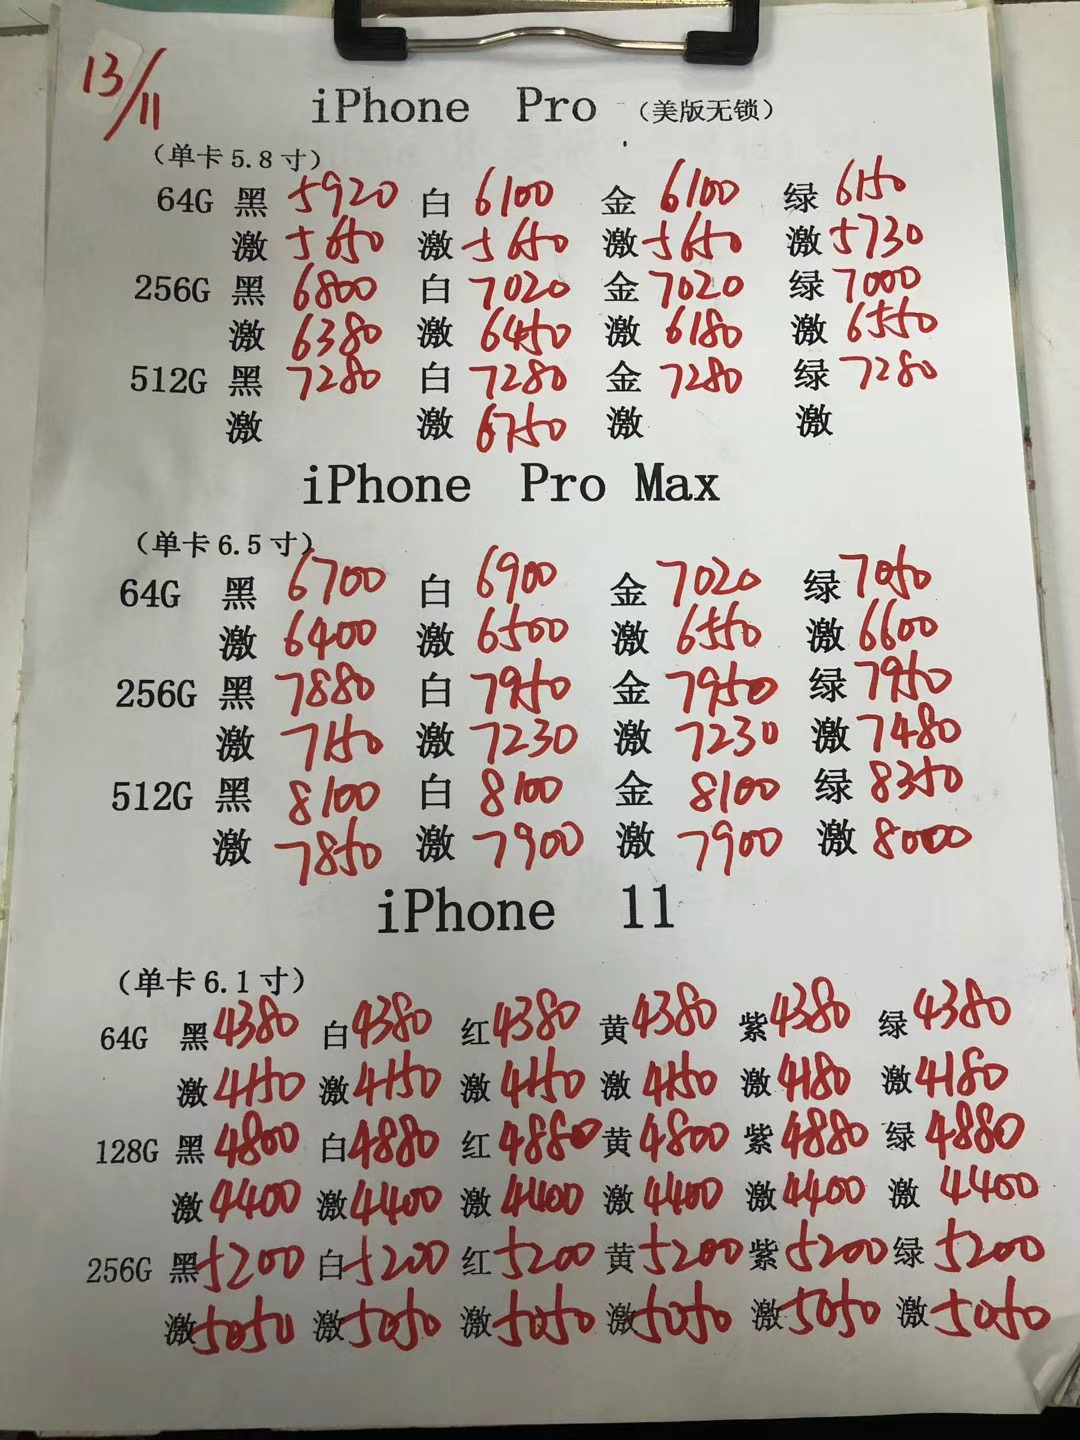 13/11
iPhone Pro (美版无锁)
(单卡5.8寸)
64G 黑 5920 白 6100 金 6100 绿 6150
激 5650 激 5650 激 5650 激 5730
256G 黑 6800 白 7020 金 7020 绿 7000
激 6380 激 6450 激 6180 激 6550
512G 黑 7280 白 7280 金 7280 绿 7280
激 激 6750 激 激
iPhone Pro Max
(单卡6.5寸)
64G 黑 6700 白 6900 金 7020 绿 7050
激 6400 激 6500 激 6550 激 6600
256G 黑 7880 白 7950 金 7950 绿 7950
激 7150 激 7230 激 7230 激 7480
512G 黑 8100 白 8100 金 8100 绿 8350
激 7850 激 7900 激 7900 激 8000
iPhone 11
(单卡6.1寸)
64G 黑 4380 白 4380 红 4380 黄 4380 紫 4380 绿 4380
激 4150 激 4150 激 4150 激 4150 激 4180 激 4180
128G 黑 4800 白 4880 红 4880 黄 4800 紫 4880 绿 4880
激 4400 激 4400 激 4400 激 4400 激 4400 激 4400
256G 黑 5200 白 5200 红 5200 黄 5200 紫 5200 绿 5200
激 5050 激 5050 激 5050 激 5050 激 5050 激 5050